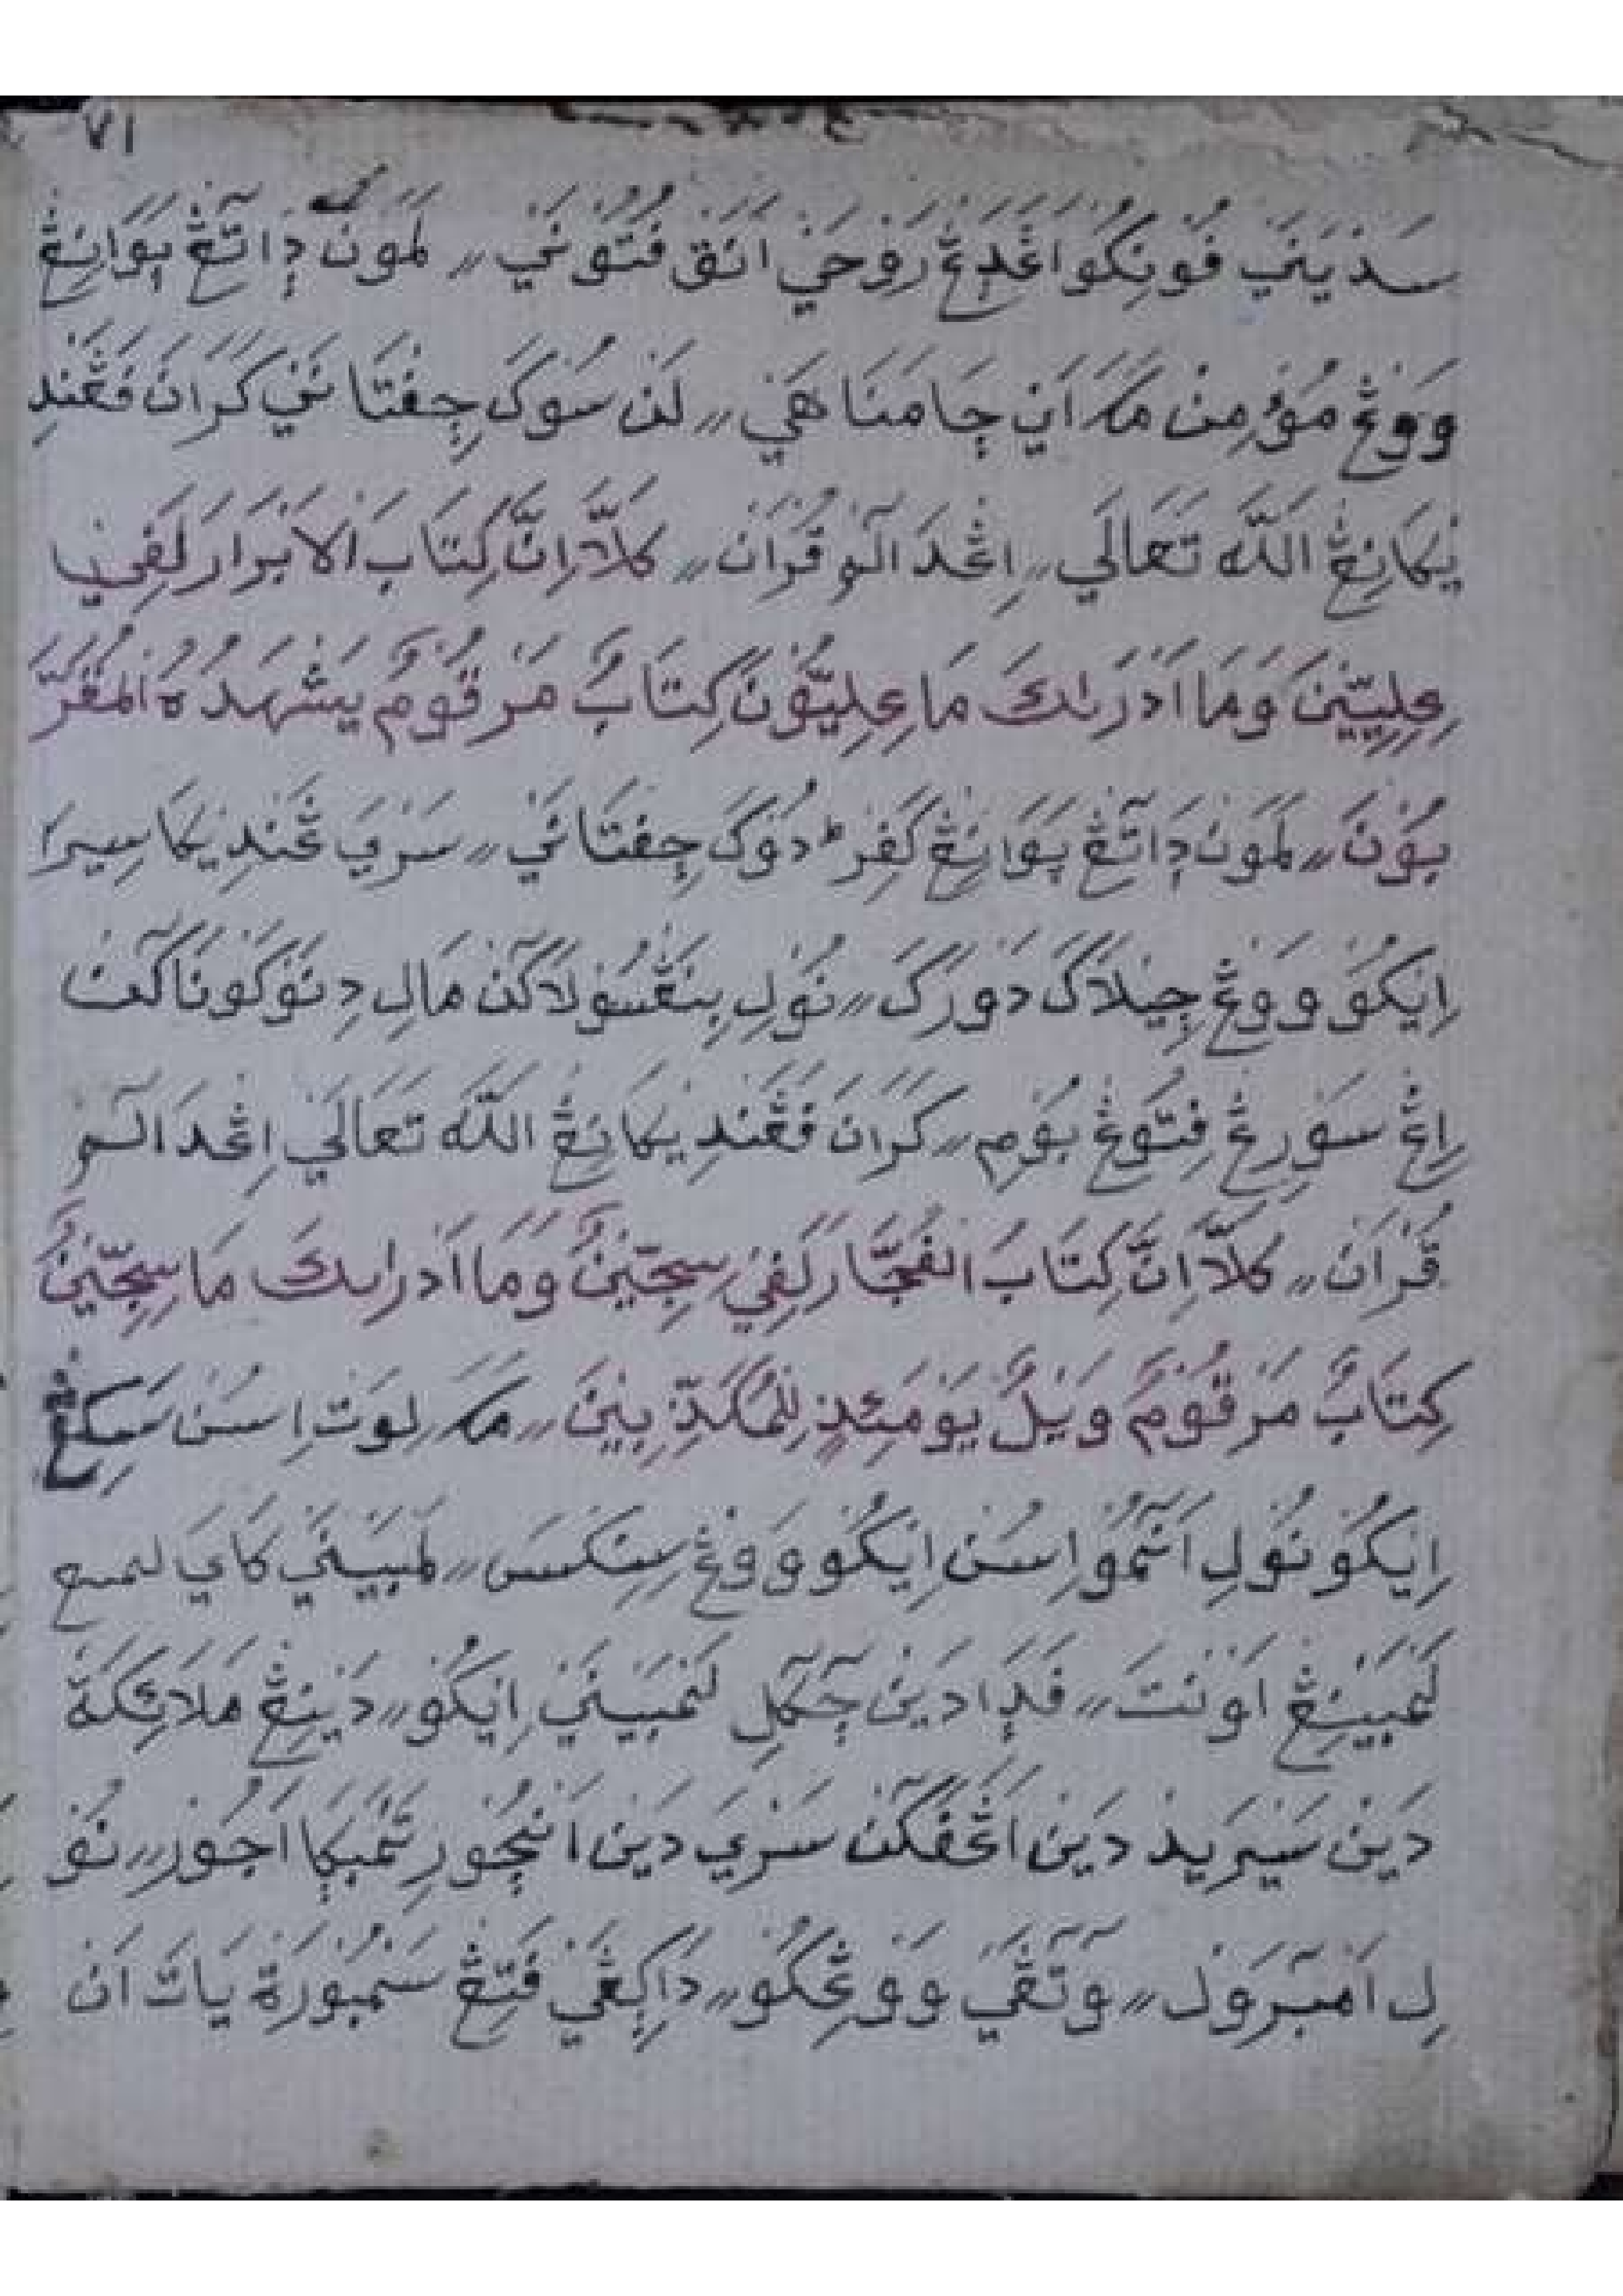 ٧١
سَدَيَنَيْ فُوْنِكُوْ اَڠْدَڠَ رَوْحَيْ اَنَقْ فُتُوْنَيْ ۞ لَمَوْنْ دٓاتٓڠْ بٓوَانِڠْ
وَوڠْ مُؤْمِنْ مَكَ اَنْ جَامَنَاهَيْ ۞ لَنْ سُوْكَ جِفْتَانَيْ كَرَانَ فَڠَنْدِ
يْكَانِڠْ اللّٰه تَعَالَي ۞ اِڠْدَالٓمْ قُرْاٰنْ ۞ كَلَّا اِنَّ كِتَابَ الاَبْرَارِ لَفِيْ
عِلِيِّيْنَ وَمَا اَدْرٰىكَ مَا عِلِيُّوْنَ كِتَابٌ مَرْقُوْمٌ يَشْهَدُهُ الْمُقَرَّ
بُوْنَ ۞ لَمَوْنْ دٓاتٓڠْ بٓوَانِڠْ كَفِرْ دُوْكَ جِفْتَانَيْ ۞ سَرْيَ ڠَنْدِيْكَا سِيْرَا
اِيْكُوْ وَوڠْ جِيْلَاكَ دَوْرَكَ ۞ نُوْلِ بِنَڠْسُوْلَاكٓنْ مَالِ دِنَوْكَوْنَاكٓنْ
اِڠْ سَوْرِڠْ فِتُوْڠْ بُوْمِ ۞ كَرَانَ فَڠَنْدِيْكَانِڠْ اللّٰه تَعَالَيْ اِڠْدَالٓمْ
قُرْاٰنْ ۞ كَلَّا اِنَّ كِتَابَ الفُجَّارِ لَفِيْ سِجِّيْنٌ وَمَا اَدْرٰىكَ مَا سِجِّيْنٌ
كِتَابٌ مَرْقُوْمٌ وَيْلٌ يَوْمَئِذٍ لِلْمُكَذِّبِيْنَ ۞ مَكَ لِوَتْ اِسُنْ سَكِڠْ
اِيْكُوْ نُوْلِ اَتٓمُوْ اِسُنْ اِيْكُوْ وَوڠْ سِنِكْسَ ۞ لَمْبَيْنَيْ كَايَ
لَمْبَيْنِڠْ اَوْنْتَ ۞ فَدٓا دَيْنْ جٓكٓلِ لَمْبَيْنَيْ اِيْكُوْ ۞ دَيْنِڠْ مَلَائِكَةْ
دَيْنْ سَيْرَيْدْ دَيْنْ اَڠْفَكٓنْ سَرْيَ دَيْنْ اَنْجُوْرِ تَمْبٓكَا اَجُوْرْ ۞ نُوْ
لِ اَمْبٓرَوْلْ ۞ وٓتٓڠَيْ وَوڠِكُوْ ۞ دَاكِڠَيْ فَتِڠْ سَمْبُوْرَةْ يَاتَ اَنْ